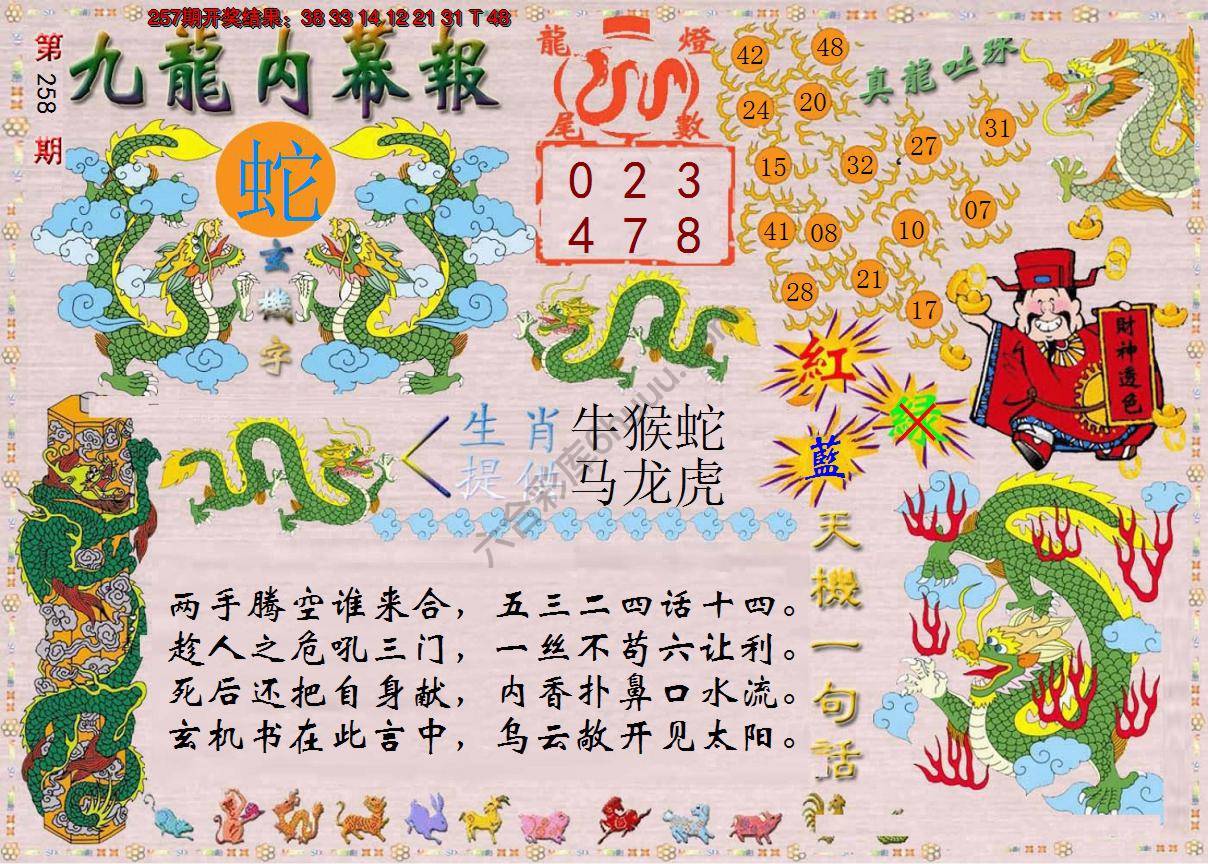 257期开奖结果：38 33 14 12 21 31 T 48
第258期
九龍内幕報
蛇
玄機字
龍燈
尾數
0 2 3
4 7 8
真龍吐珠
42 48
24 20
15 32 27 31
41 08 10 07
28 21 17
紅
绿
藍
財神透色
生肖 牛猴蛇
提供 马龙虎
六合彩库
天機一句話
两手腾空谁来合，五三二四话十四。
趁人之危吼三门，一丝不苟六让利。
死后还把自身献，内香扑鼻口水流。
玄机书在此言中，乌云敞开见太阳。